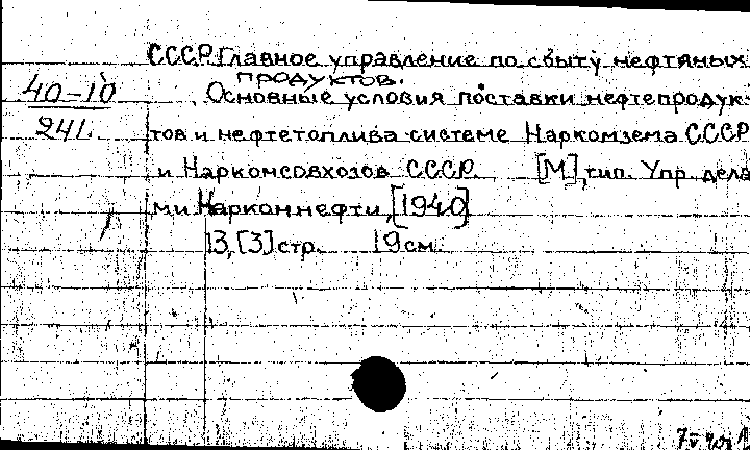 СССР. Главное управление по сбыту нефтяных
продуктов.
40-10
241.
Основные условия поставки нефтепродук-
тов и нефтетоплива системе Наркомзема СССР
и Наркомсовхозов СССР. [М], тип. Упр. дела
ми Наркомнефти, [1940]
13, [3] стр. 19 см.